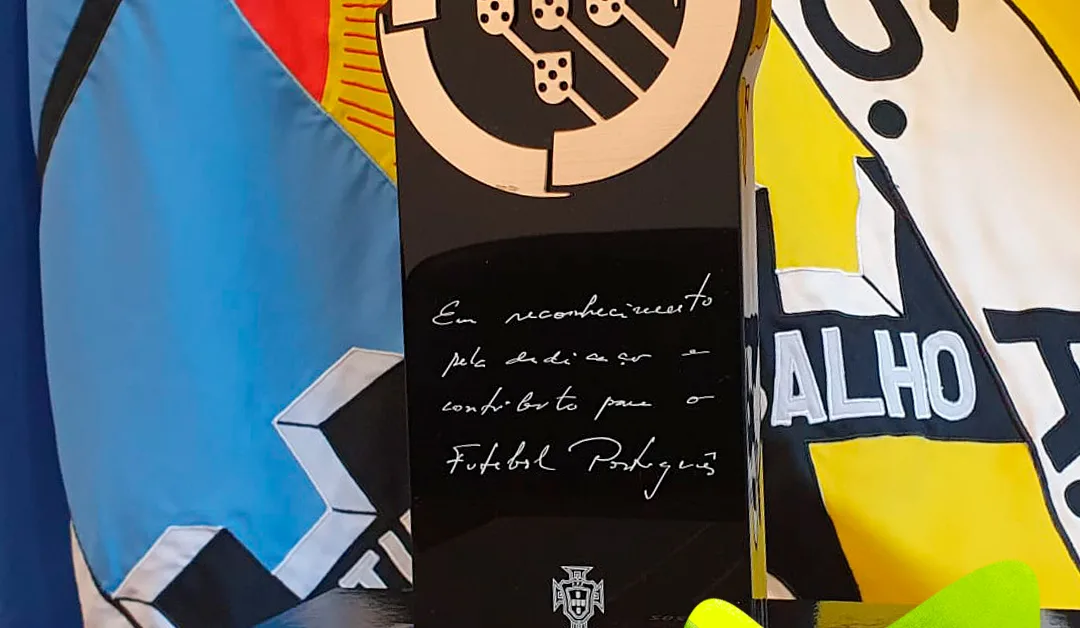 Em reconhecimento
pela dedicação e
contributo para o
Futebol Português
ALHO